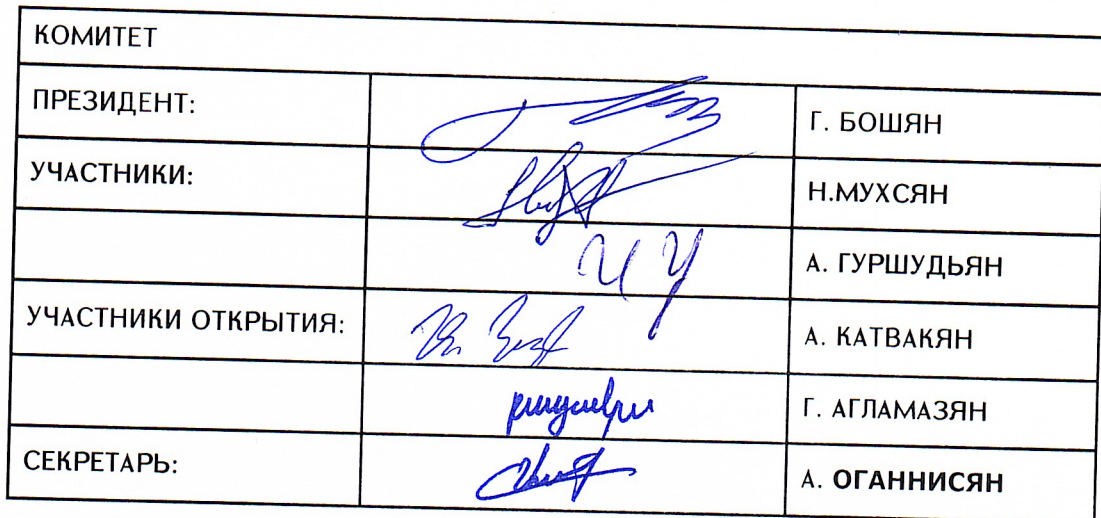 КОМИТЕТ
ПРЕЗИДЕНТ: Г. БОШЯН
УЧАСТНИКИ: Н.МУХСЯН
А. ГУРШУДЬЯН
УЧАСТНИКИ ОТКРЫТИЯ: А. КАТВАКЯН
Г. АГЛАМАЗЯН
СЕКРЕТАРЬ: А. ОГАННИСЯН